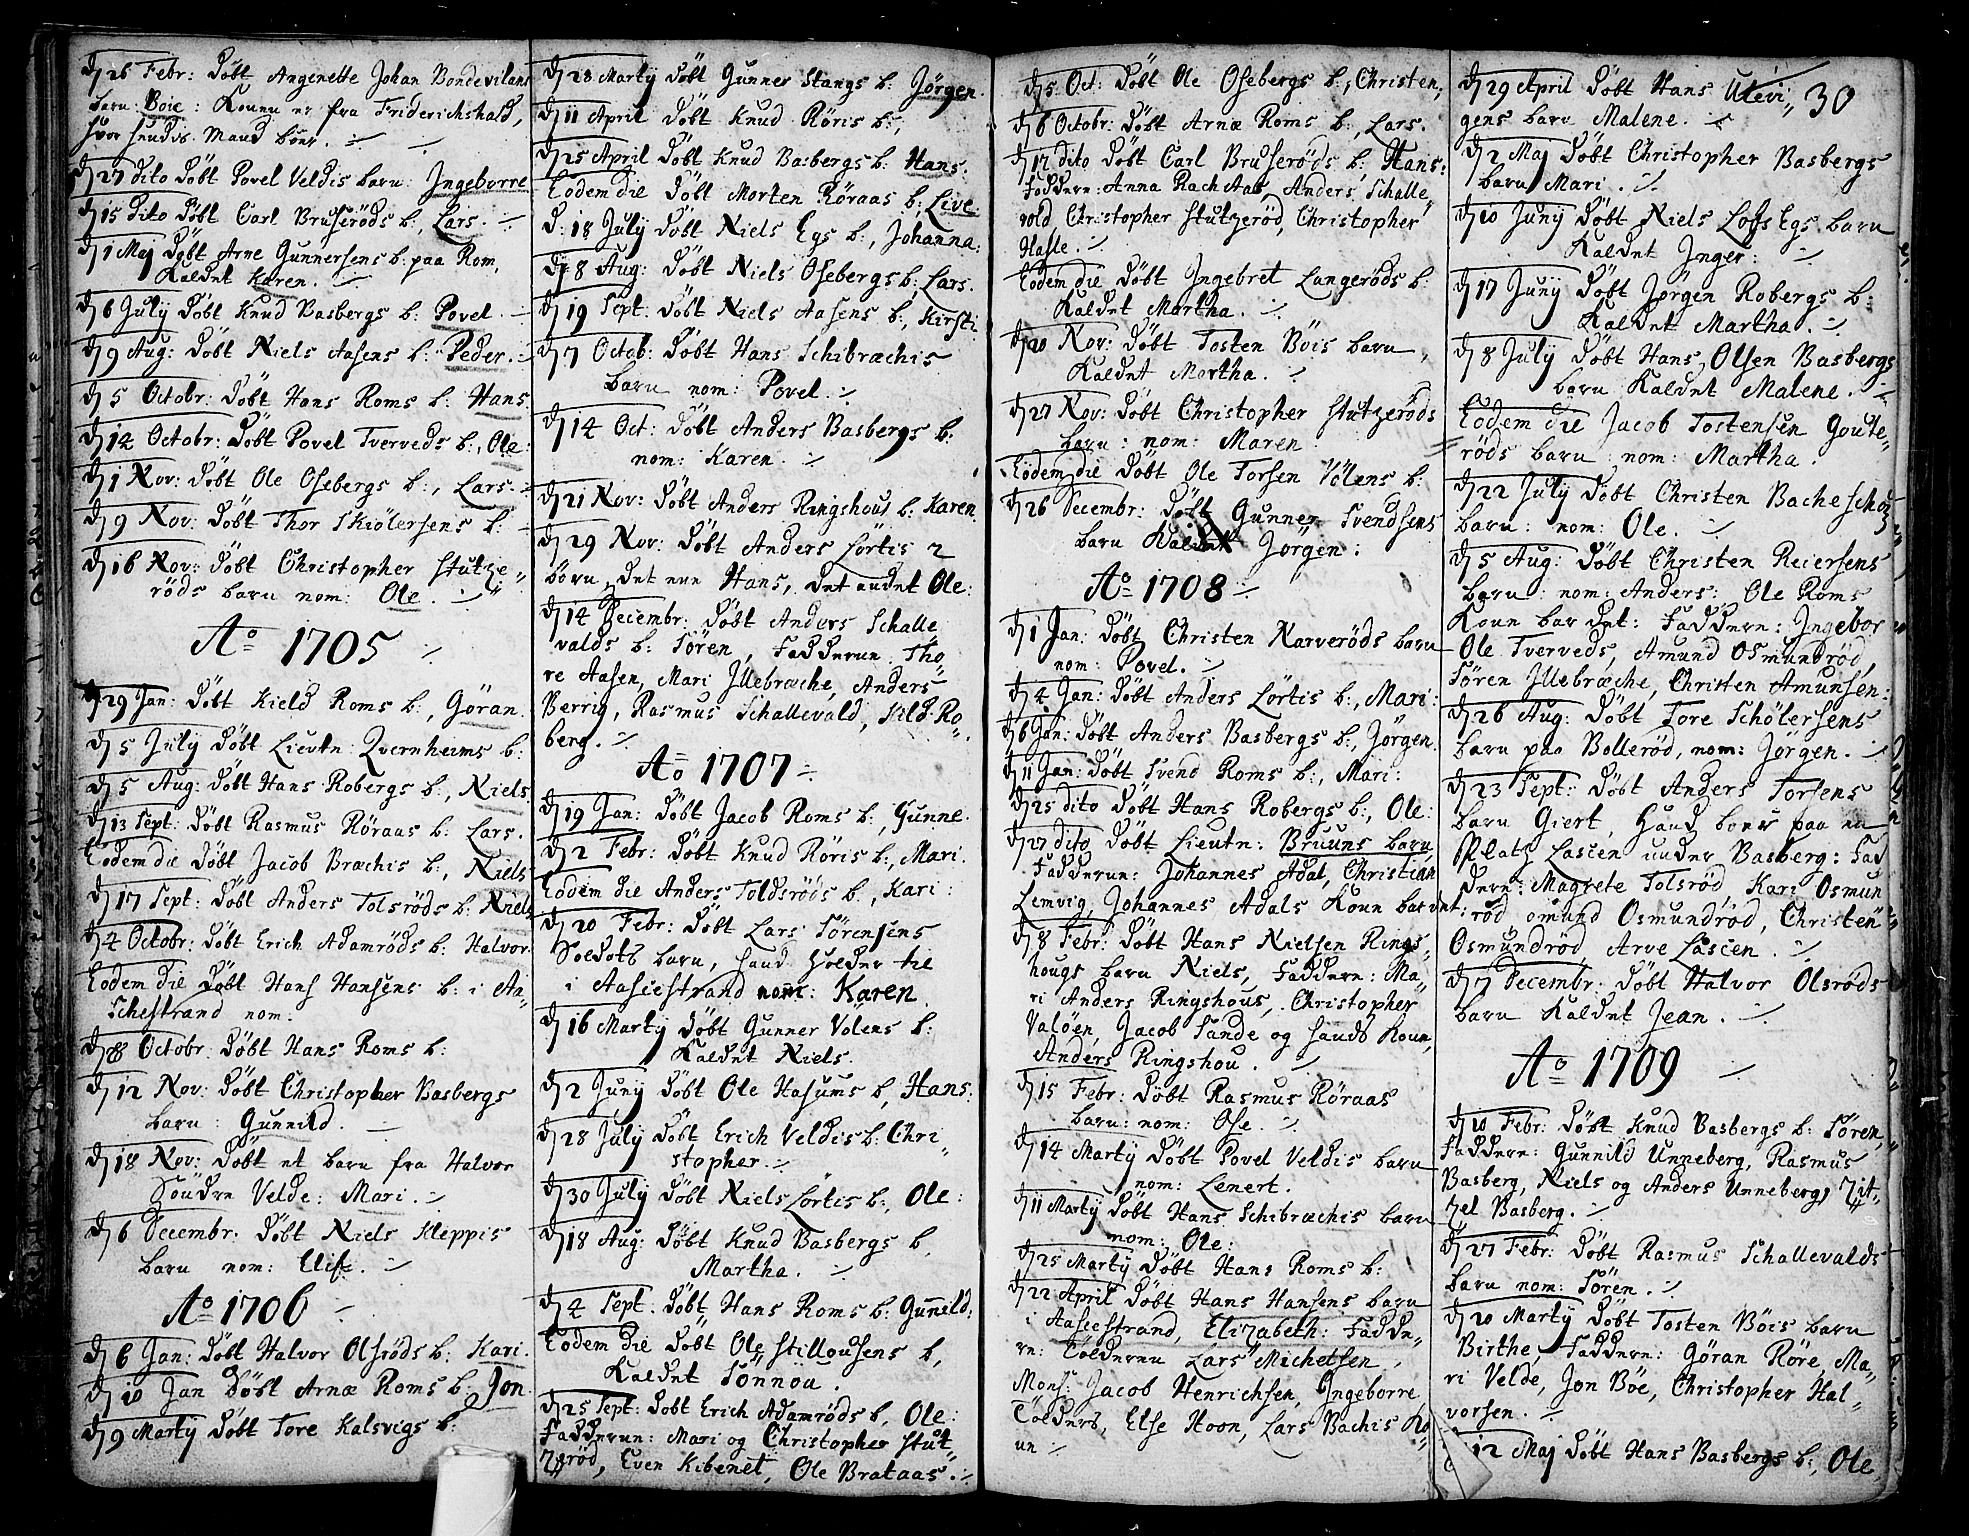 d 26 Febr: Döbt Angenette Johan Bondevilans
barn: Boie: Konen er fra Friderichshald,
hvor hendis Mand boer.
d 27 Dito Döbt Povel Veldis barn: Ingeborre
d 15 Dito Döbt Carl Bruseröds b:, Lars.
d 1 Maj Döbt Arne Gunnersens b: paa Rom,
Kaldet Karen.
d 6 July Döbt Knud Basbergs b: Povel.
d 9 Aug: Döbt Niels Aasens b: Peder.
d 5 Octobr: Döbt Hans Roms b: Hans.
d 14 Octobr: Döbt Povel Tverveds b:, Ole:
d 1 Nov: Döbt Ole Osebergs b:, Lars.
d 9 Nov: Döbt Thor Skiölersens b:
d 16 Nov: Döbt Christopher Stutze„
röds barn nom: Ole.
Ao 1705
d 29 Jan: Döbt Kield Roms b:, Göran.
d 5 July Döbt Lieutn: Qvernheims b:
d 5 Aug: Döbt Hans Robergs b:, Niels.
d 13 Sept: Döbt Rasmus Röraas b: Lars.
Eodem die Döbt Jacob Bræchis b:, Niels
d 17 Sept: Döbt Anders Tolsröds b: Niels
d 4 Octobr: Döbt Erich Adamröds b: Halvor
Eodem die Döbt Hans Hansens b: i Aa„
schestrand nom:
d 8 Octobr: Döbt Hans Roms b:
d 12 Nov: Döbt Christopher Basbergs
barn: Gunnild.
d 18 Nov: Döbt et barn fra Halvor
Söndre Velde: Mari.
d 6 Decembr: Döbt Niels Kleppis
barn nom: Elise.
Ao 1706
d 6 Jan: Döbt Halvor Olsröds b: Kari.
d 10 Jan Döbt Arnæ Roms b: Jon.
d 9 Martij Döbt Tore Kalsvigs b:
d 28 Martij Döbt Gunner Stangs b: Jörgen.
d 11 April Döbt Knud Röris b:,
d 25 April Döbt Knud Basbergs b: Hans:
Eodem die Döbt Morten Röraas b: Live
d: 18 July Döbt Niels Egs b:, Johanna:
d 8 Aug: Döbt Niels Osebergs b: Lars.
d 19 Sept: Döbt Niels Aasens b:, Kirsti
d 7 Octob: Döbt Hans Schibræchis
barn nom: Povel.
d 14 Oct: Döbt Anders Basbergs b:
nom: Karen.
d 21 Nov: Döbt Anders Ringshous b: Karen.
d 29 Nov: Döbt Anders Lörtis 2
börn, det ene Hans, det andet Ole:
d 14 Decembr: Döbt Anders Schalle
valds b: Sören, Fadderne: Tho„
re Aasen, Mari Illebræche, Anders
Berrig, Rasmus Schallevald, Kild Ro„
berg.
Ao 1707
d 19 Jan: Döbt Jacob Roms b:, Gunne.
d 2 Febr: Döbt Knud Röris b:, Mari.
Eodem die Anders Toldsröds b:, Kari:
d 20 Febr: Döbt Lars Sörensens
Soldats barn, hand holder til
i Aasiestrand nom: Karen
d 16 Martij Döbt Gunner Volens b:
Kaldet Niels.
d 2 Junij Döbt Ole Hasums b, Hans:
d 28 July Döbt Erich Veldis b: Chri„
stopher.
d 30 July Döbt Niels Lörtis b:, Ole:
d 18 Aug: Döbt Knud Basbergs b,
Martha.
d 4 Sept: Döbt Hans Roms b: Gunnild:
Eodem die Döbt Ole Stillousens b,
Kaldet Sönnou.
d 25 Sept: Döbt Erich Adamröds b, Ole:
Fadderne: Mari og Christopher Stut„
zeröd, Even Kibenet, Ole Brataas.
d 5 Oct: Döbt Ole Osebergs b:, Christen,
d 6 Octobr: Döbt Arnæ Roms b:, Lars.
d 12 dito Döbt Carl Bruseröds b: Hans:
Faddere: Anna Rachaas, Anders Schalle„
vold Christopher Stutzeröd, Christopher
Hasle.
Eodem die Döbt Ingebret Langeröds b:
Kaldet Martha.
d 20 Nov: Döbt Tosten Böis barn,
Kaldet Martha.
d 27 Nov: Döbt Christopher Stutzeröds
barn: nom: Maren
Eodem die Döbt Ole Torsen Völens b:
d 26 Decembr: Döbt Gunner Svendsens
barn Kaldet Jörgen:
Ao 1708
d 1 Jan: Döbt Christen Narveröds barn
nom: Povel.
d 4 Jan: Döbt Anders Lörtis b:, Mari:
d 6 Jan: Döbt Anders Basbergs b:, Jörgen.
d 11 Jan: Döbt Svend Roms b:, Mari:
d 25 dito Döbt Hans Robergs b:, Ole:
d 27 dito Döbt Lieutn: Bruuns barn
Fadderne: Johannes Adal, Christian
Lemvig, Johannes Adals Kone bar det:
d 8 Febr: Döbt Hans Nielsen Rings„
hougs barn Niels, Faddere: Ma„
ri Anders Ringshous, Christopher
Valöen, Jacob Sande og hands Kone,
Anders Ringshou.
d 15 Febr: Döbt Rasmus Röraas
barn: nom: Ose.
d 14 Martij Döbt Povel Veldis barn
nom: Lenert.
d 11 Martij Döbt Hans Schibræchis barn
nom: Ole:
d 25 Martij Döbt Hans Roms b:
d 22 April Döbt Hans Hansens barn
i Aasiestrand, Elizabeth: Fadde„
re: Tolderen Lars Michelsen,
Mons: Jacob Henrichsen, Ingeborre
Tolders, Else Hoon, Lars Bachis Ko„
ne
d 29 April Döbt Hans Utevi„ 30
gens barn Malene.
d 2 Maj Döbt Christopher Basbergs
barn Mari.
d 10 Junij Döbt Niels Lofs Egs barn
Kaldet Inger:
d 17 Junij Döbt Jörgen Robergs b:
Kaldet Martha.
d 8 July Döbt Hans Olsen Basbergs
barn Kaldet Malene.
Eodem die Jacob Tostensen Goute„
röds barn nom: Martha.
d 22 July Döbt Christen Bacheschog
barn: nom: Ole.
d 5 Aug: Döbt Christen Reiersens
barn: nom: Anders: Ole Roms
Kone bar det: Faddere: Ingebor
Ole Tverveds, Amund Osmundröd,
Sören Illebræche, Christen Amunsen:
d 26 Aug: Döbt Tore Schölersens
barn paa Bolleröd, nom: Jörgen.
d 23 Sept: Döbt Anders Torsens
barn Giert, Hand boer paa en
Platz Lascen under Basberg: Fad
dere: Magrete Tolsröd, Kari Osmun„
röd omund Osmundröd, Christen
Osmundröd, Arve Lascen.
d 7 Decembr: Döbt Halvor Olsröds
barn Kaldet Jean.
Ao 1709
d 10 Febr: Döbt Knud Basbergs b: Sören,
Faddere: Gunnild Unneberg, Rasmus
Basberg, Niels og Anders Unneberg, Zit„
zel Basberg.
d 27 Febr: Döbt Rasmus Schallevalds
barn nom: Sören.
d 20 Martij Döbt Tosten Böis barn
Birthe, Faddere: Göran Röre, Ma„
ri Velde, Jon Böe, Christopher Hal„
vorsen.
12 Maj Döbt Hans Basbergs b:, Ole